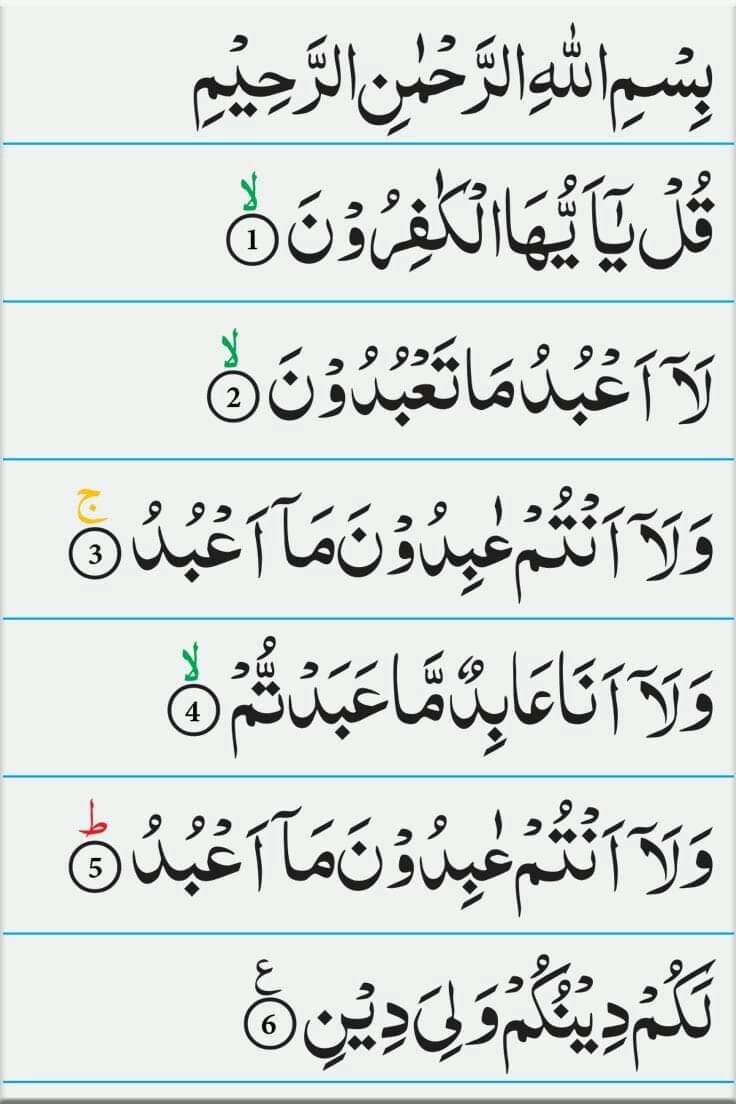 بِسْمِ اللّٰهِ الرَّحْمٰنِ الرَّحِيْمِ
قُلْ يٰٓاَيُّهَا الْكٰفِرُوْنَ ۙ 1
لَآ اَعْبُدُ مَا تَعْبُدُوْنَ ۙ 2
وَلَآ اَنْتُمْ عٰبِدُوْنَ مَآ اَعْبُدُ ۚ 3
وَلَآ اَنَا عَابِدٌ مَّا عَبَدْتُّمْ ۙ 4
وَلَآ اَنْتُمْ عٰبِدُوْنَ مَآ اَعْبُدُ ؕ 5
لَكُمْ دِيْنُكُمْ وَلِىَ دِيْنِ ع 6